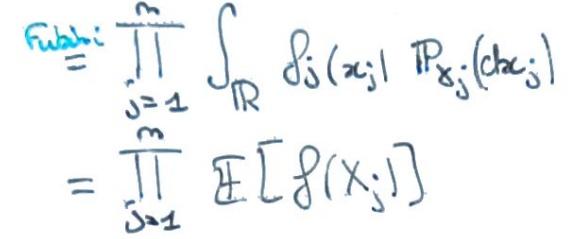 Fubini = \prod_{j=1}^{n} \int_{\mathbb{R}} f_j(x_j) \mathbb{P}_{X_j}(dx_j)
= \prod_{j=1}^{n} \mathbb{E}[f(X_j)]